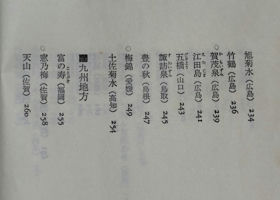 旭菊水（広島） 234
竹鶴（広島） 236
○賀茂泉（広島） 239
江田島（広島） 241
五橋（山口） 243
諏訪泉（鳥取） 245
豊の秋（島根） 247
○梅錦（愛媛） 249
土佐菊水（高知） 254
九州地方
富の寿（福岡） 255
○窓乃梅（佐賀） 258
天山（佐賀） 260